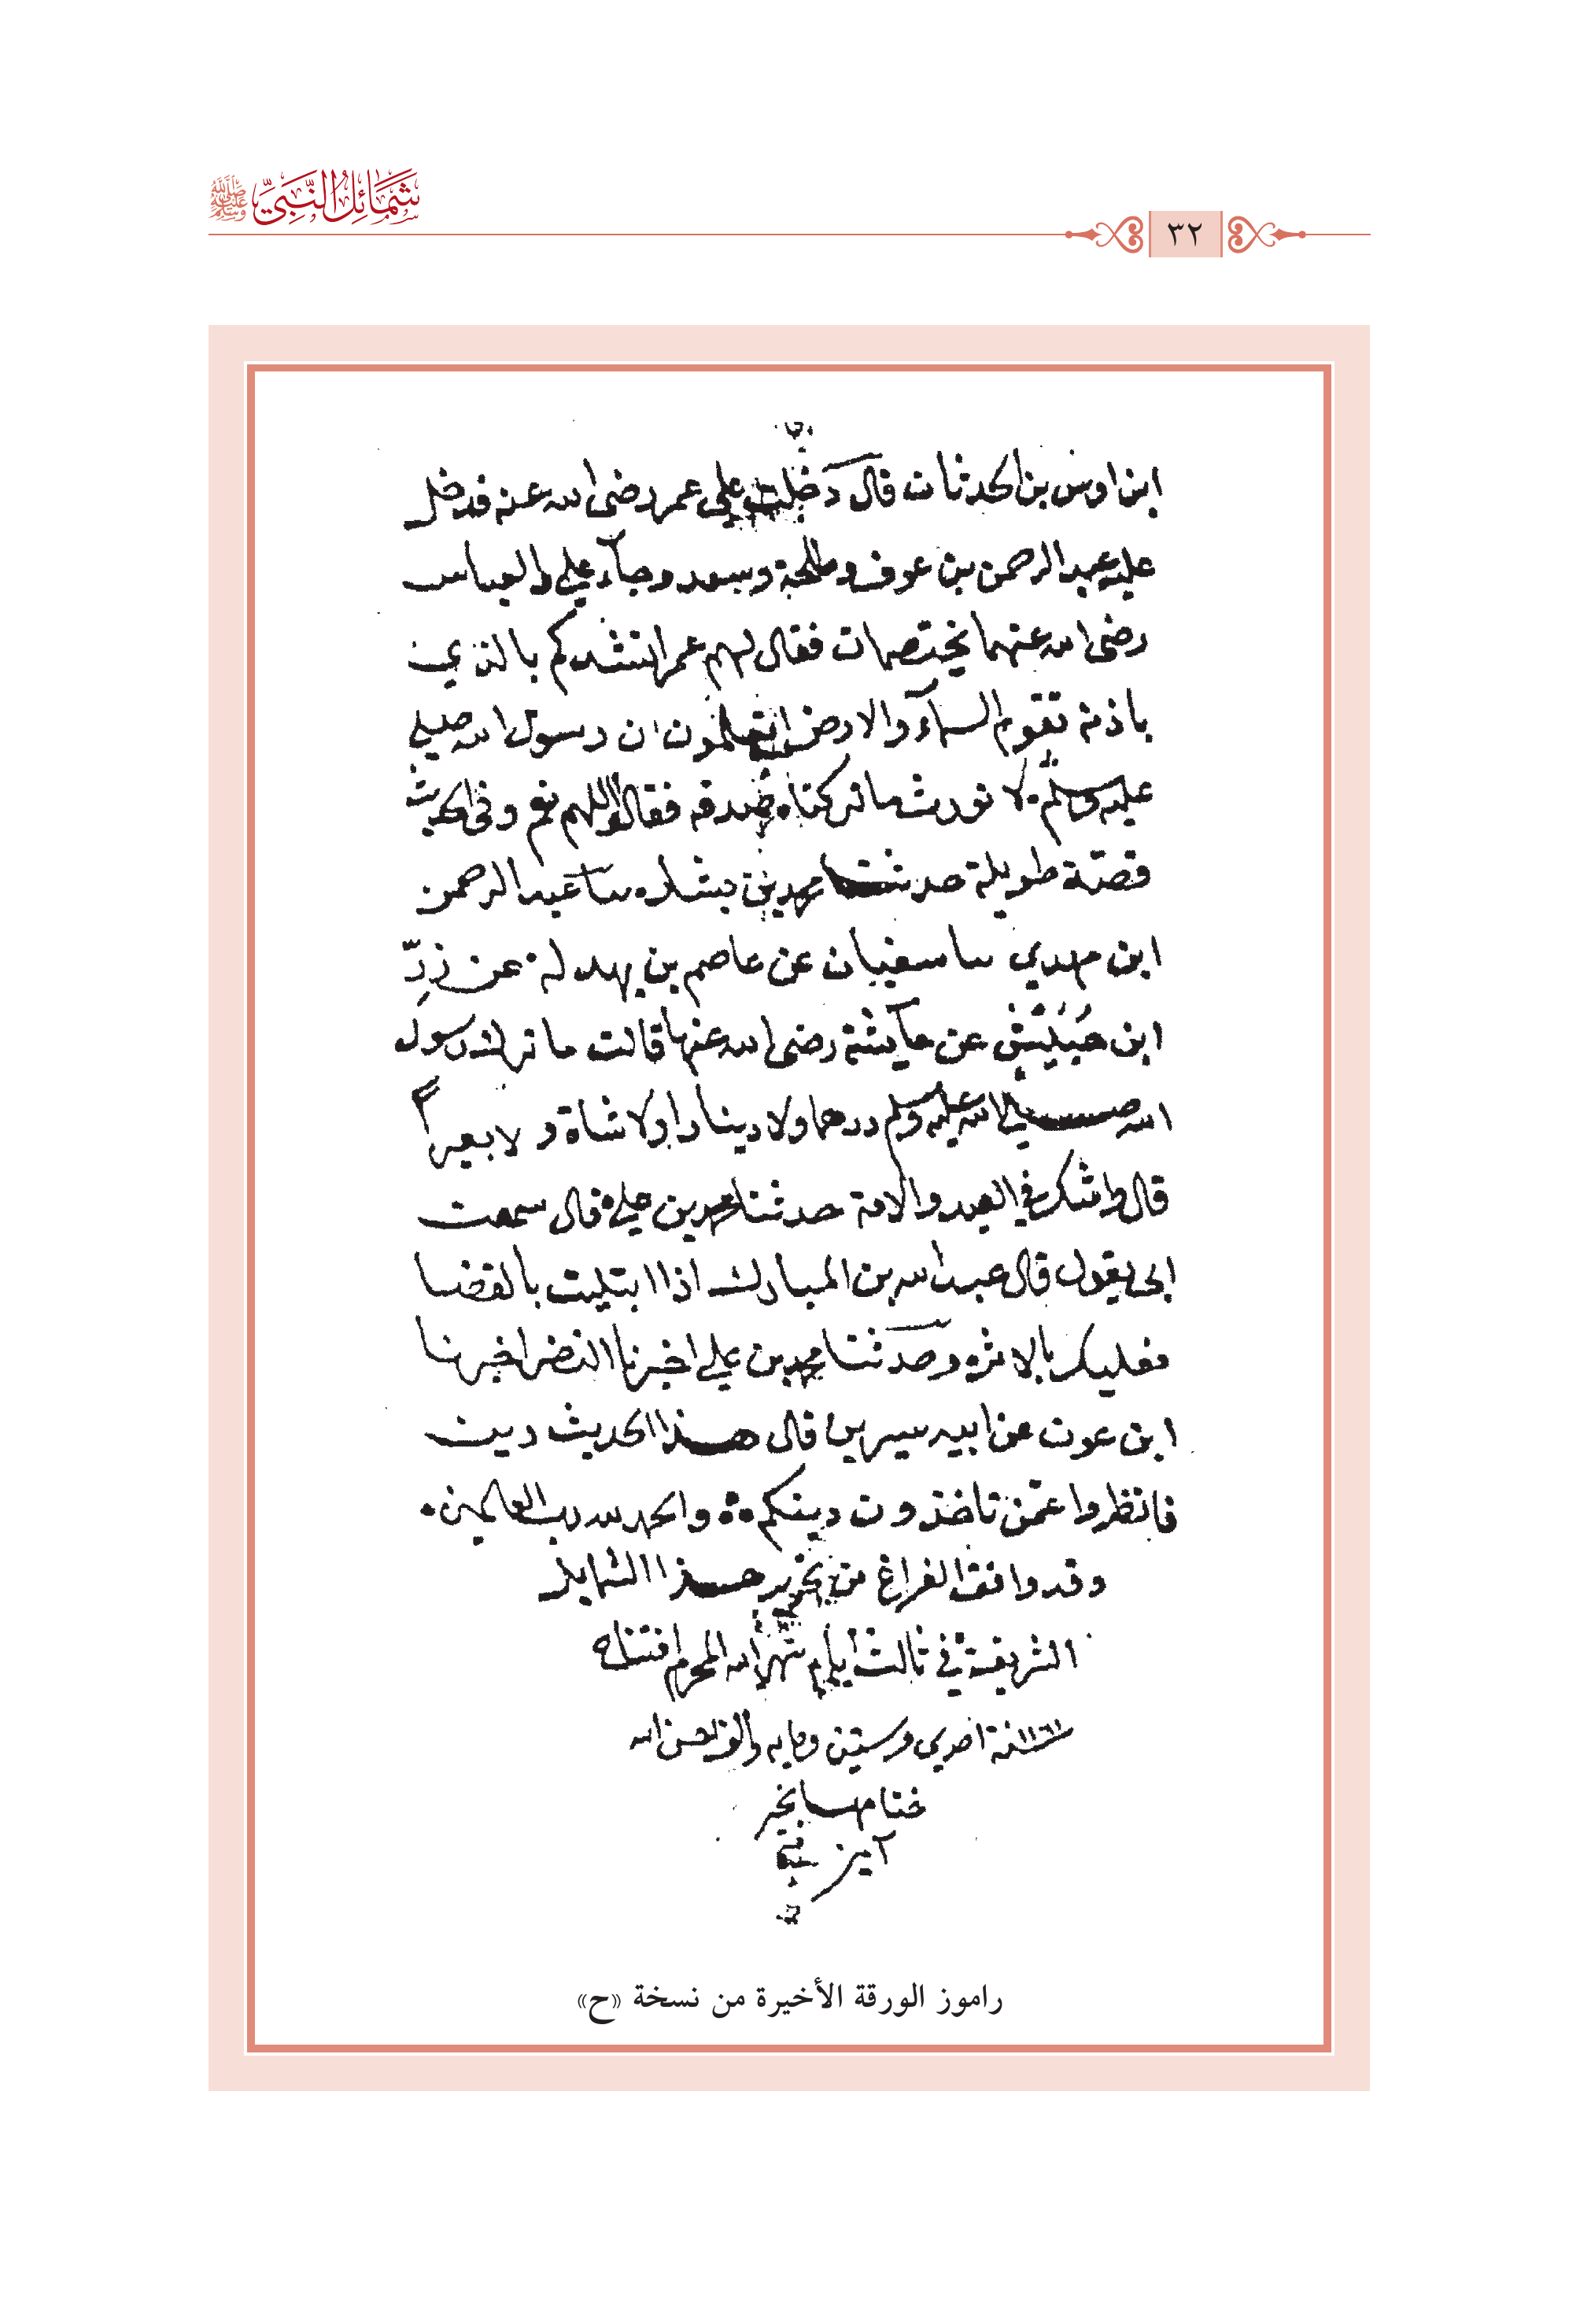 شمائل النبي ﷺ
٣٢
ابن اوس بن الحدثان قال دخلت على عمر رضى الله عنه فدخل
عليه عبد الرحمن بن عوف وطلحة وسعد وجآء علي والعباس
رضى الله عنهما يختصمان فقال لهم عمر انشدكم بالذي
باذنه تقوم السمآء والارض اتعلمون ان رسول الله صلى
عليه وسلم لا نورث ما تركناه صدقه فقالوا اللهم نعم وفى الحديث
قصّة طويلة حدثنا محمد بن بشار ثنا عبد الرحمن
ابن مهدي ثنا سفيان عن عاصم بن بهدلة عن زرّ
ابن حُبَيْش عن عآيشة رضى الله عنها قالت ما ترك رسول
الله صلى الله عليه وسلم درهما ولا دينارا ولا شاة ولا بعيراً
قال واشك في العبد والامة حدثنا محمد بن علي قال سمعت
ابى يقول قال عبد الله بن المبارك اذا ابتليت بالقضا
فعليك بالاثر وحدثنا محمد بن علي اخبرنا النضر اخبرنا
ابن عون عن ابيه سيرين قال هذا الحديث دين
فانظروا عمّن تاخذون دينكم والحمد لله رب العالمين
وقد وافق الفراغ من تحرير هذا الشمايل
الشريفة في ثالث ايام شهر الله المحرم افتتاح
سنة ١١٦١ احدي وستين ومايه والف احسن الله
ختامها بخير
آمين
راموز الورقة الأخيرة من نسخة «ح»